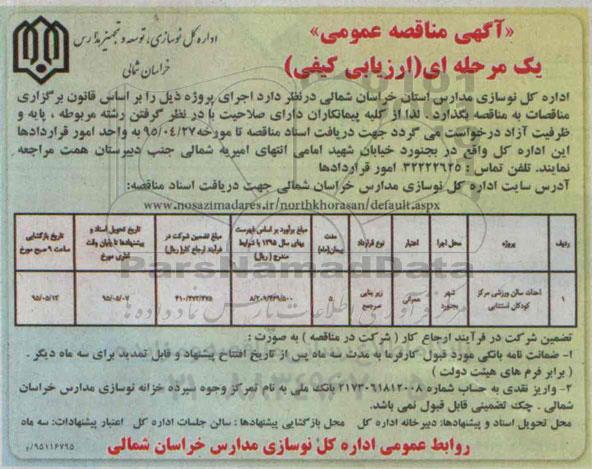 «آگهی مناقصه عمومی»
یک مرحله ای(ارزیابی کیفی)
اداره کل نوسازی، توسعه و تجهیز مدارس
خراسان شمالی
اداره کل نوسازی مدارس استان خراسان شمالی درنظر دارد اجرای پروژه ذیل را بر اساس قانون برگزاری
مناقصات به مناقصه بگذارد. لذا از کلیه پیمانکاران دارای صلاحیت با در نظر گرفتن رشته مربوطه ، پایه و
ظرفیت آزاد درخواست می گردد جهت دریافت اسناد مناقصه تا مورخه ۹۵/۰۴/۲۷ به واحد امور قراردادها
این اداره کل واقع در بجنورد خیابان شهید امامی انتهای امیریه شمالی جنب دبیرستان همت مراجعه
نمایند. تلفن تماس : ۳۲۲۲۲۶۲۵ امور قراردادها
آدرس سایت اداره کل نوسازی مدارس خراسان شمالی جهت دریافت اسناد مناقصه:
www.nosazimadares.ir/northkhorasan/default.aspx
ردیف | پروژه | محل اجرا | اعتبار | نوع قرارداد | مدت پیمان(ماه) | مبلغ برآورد بر اساس فهرست بهای سال ۱۳۹۵ با شرایط مندرج (ریال) | مبلغ تضمین شرکت در فرآیند ارجاع کار( ریال) | تاریخ تحویل اسناد و پیشنهادها تا پایان وقت اداری مورخ | تاریخ بازگشایی ساعت ۹ صبح مورخ
۱ | احداث سالن ورزشی مرکز کودکان استثنایی | شهر بجنورد | عمرانی | زیر بنایی سرجمع | ۵ | ۸/۲۰۹/۴۶۹/۵۰۰ | ۴۱۰/۴۷۳/۴۷۵ | ۹۵/۰۵/۰۷ | ۹۵/۰۵/۱۲
تضمین شرکت در فرآیند ارجاع کار ( شرکت در مناقصه ) به صورت :
۱- ضمانت نامه بانکی مورد قبول کارفرما به مدت سه ماه پس از تاریخ افتتاح پیشنهاد و قابل تمدید برای سه ماه دیگر .
( برابر فرم های هیئت دولت )
۲- واریز نقدی به حساب شماره ۲۱۷۳۰۶۱۸۱۲۰۰۸ بانک ملی به نام تمرکز وجوه سپرده خزانه نوسازی مدارس خراسان
شمالی . چک تضمینی قابل قبول نمی باشد.
محل تحویل اسناد و پیشنهادها: دبیرخانه اداره کل محل بازگشایی پیشنهادها : سالن جلسات اداره کل اعتبار پیشنهادات: سه ماه
روابط عمومی اداره کل نوسازی مدارس خراسان شمالی
۹۵۱۱۶۷۹۵/م
ParsNamadData